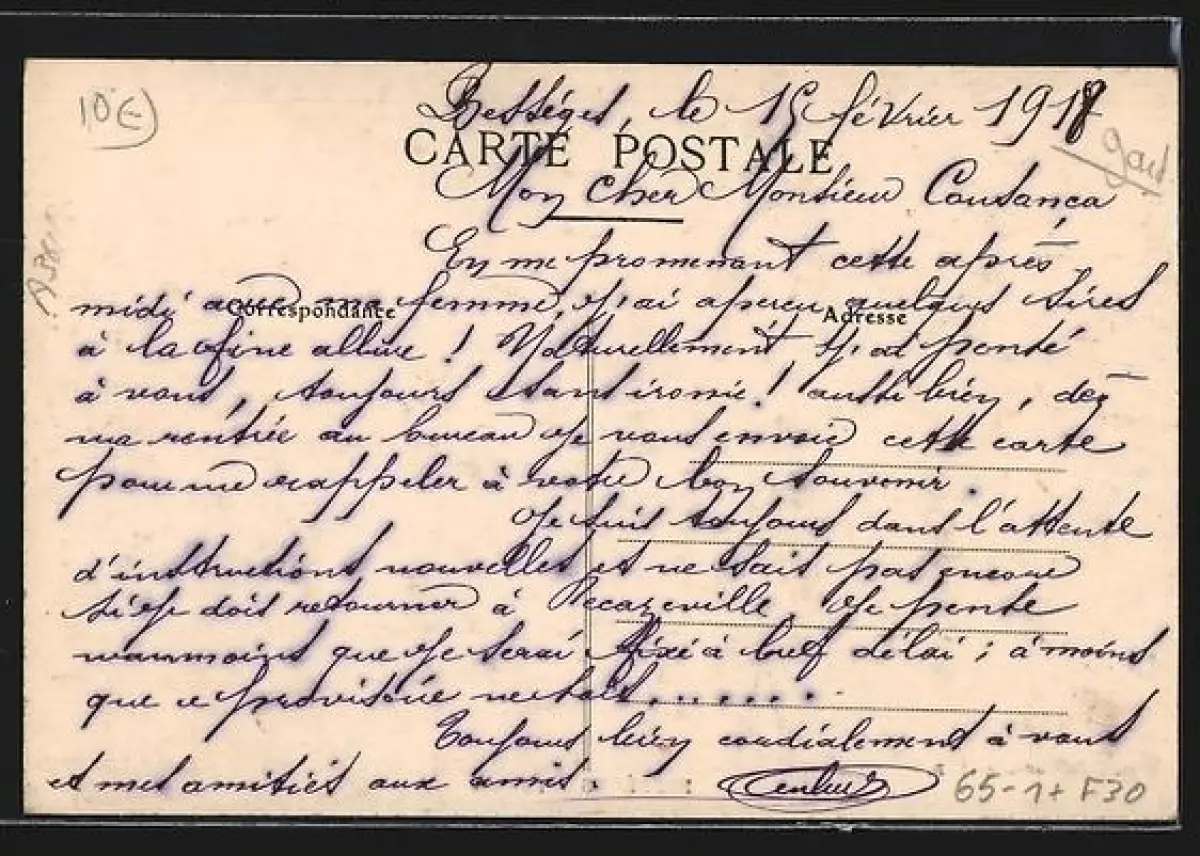 10€
Bességes, le 15 février 1918
Gard
CARTE POSTALE
Mon cher Monsieur Constança
En me promenant cette après
midi avec ma femme, j'ai aperçu quelques sires
Correspondance
Adresse
à la fine allure ! Naturellement j'ai pensé
à vous, toujours sans ironie ! aussi bien, dès
ma rentrée au bureau je vous envoie cette carte
pour me rappeler à votre bon souvenir.
Je suis toujours dans l'attente
d'instructions nouvelles et ne sais pas encore
si je dois retourner à Decazeville, Je pense
néanmoins que je serai fixé à bref délai ; à moins
que ce provisoire
Toujours bien cordialement à vous
et mes amitiés aux amis.
65-1+ F30